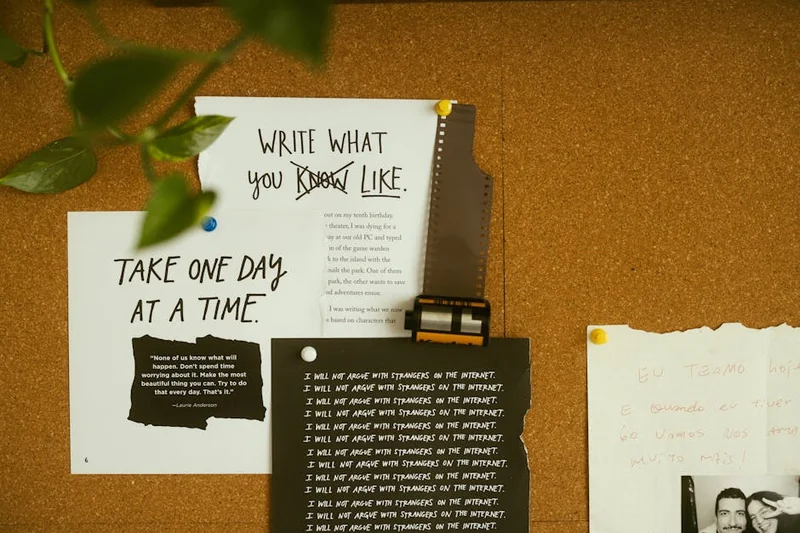 WRITE WHAT
you KNOW LIKE.
out on my tenth birthday.
theater, I was dying for a
at our old PC and typed
in of the game warden
to the island with the
built the park. One of them
park, the other wants to save
adventures ensue.
I was writing what we now
based on characters that
TAKE ONE DAY
AT A TIME.
“None of us know what will
happen. Don’t spend time
worrying about it. Make the most
beautiful thing you can. Try to do
that every day. That’s it.”
—Laurie Anderson
6
I WILL NOT ARGUE WITH STRANGERS ON THE INTERNET.
I WILL NOT ARGUE WITH STRANGERS ON THE INTERNET.
I WILL NOT ARGUE WITH STRANGERS ON THE INTERNET.
I WILL NOT ARGUE WITH STRANGERS ON THE INTERNET.
I WILL NOT ARGUE WITH STRANGERS ON THE INTERNET.
I WILL NOT ARGUE WITH STRANGERS ON THE INTERNET.
I WILL NOT ARGUE WITH STRANGERS ON THE INTERNET.
I WILL NOT ARGUE WITH STRANGERS ON THE INTERNET.
I WILL NOT ARGUE WITH STRANGERS ON THE INTERNET.
I WILL NOT ARGUE WITH STRANGERS ON THE INTERNET.
I WILL NOT ARGUE WITH STRANGERS ON THE INTERNET.
I WILL NOT ARGUE WITH STRANGERS ON THE INTERNET.
I WILL NOT ARGUE WITH STRANGERS ON THE INTERNET.
EU TEAMO
E quando eu tiver
60 vamos nos
muito mais!